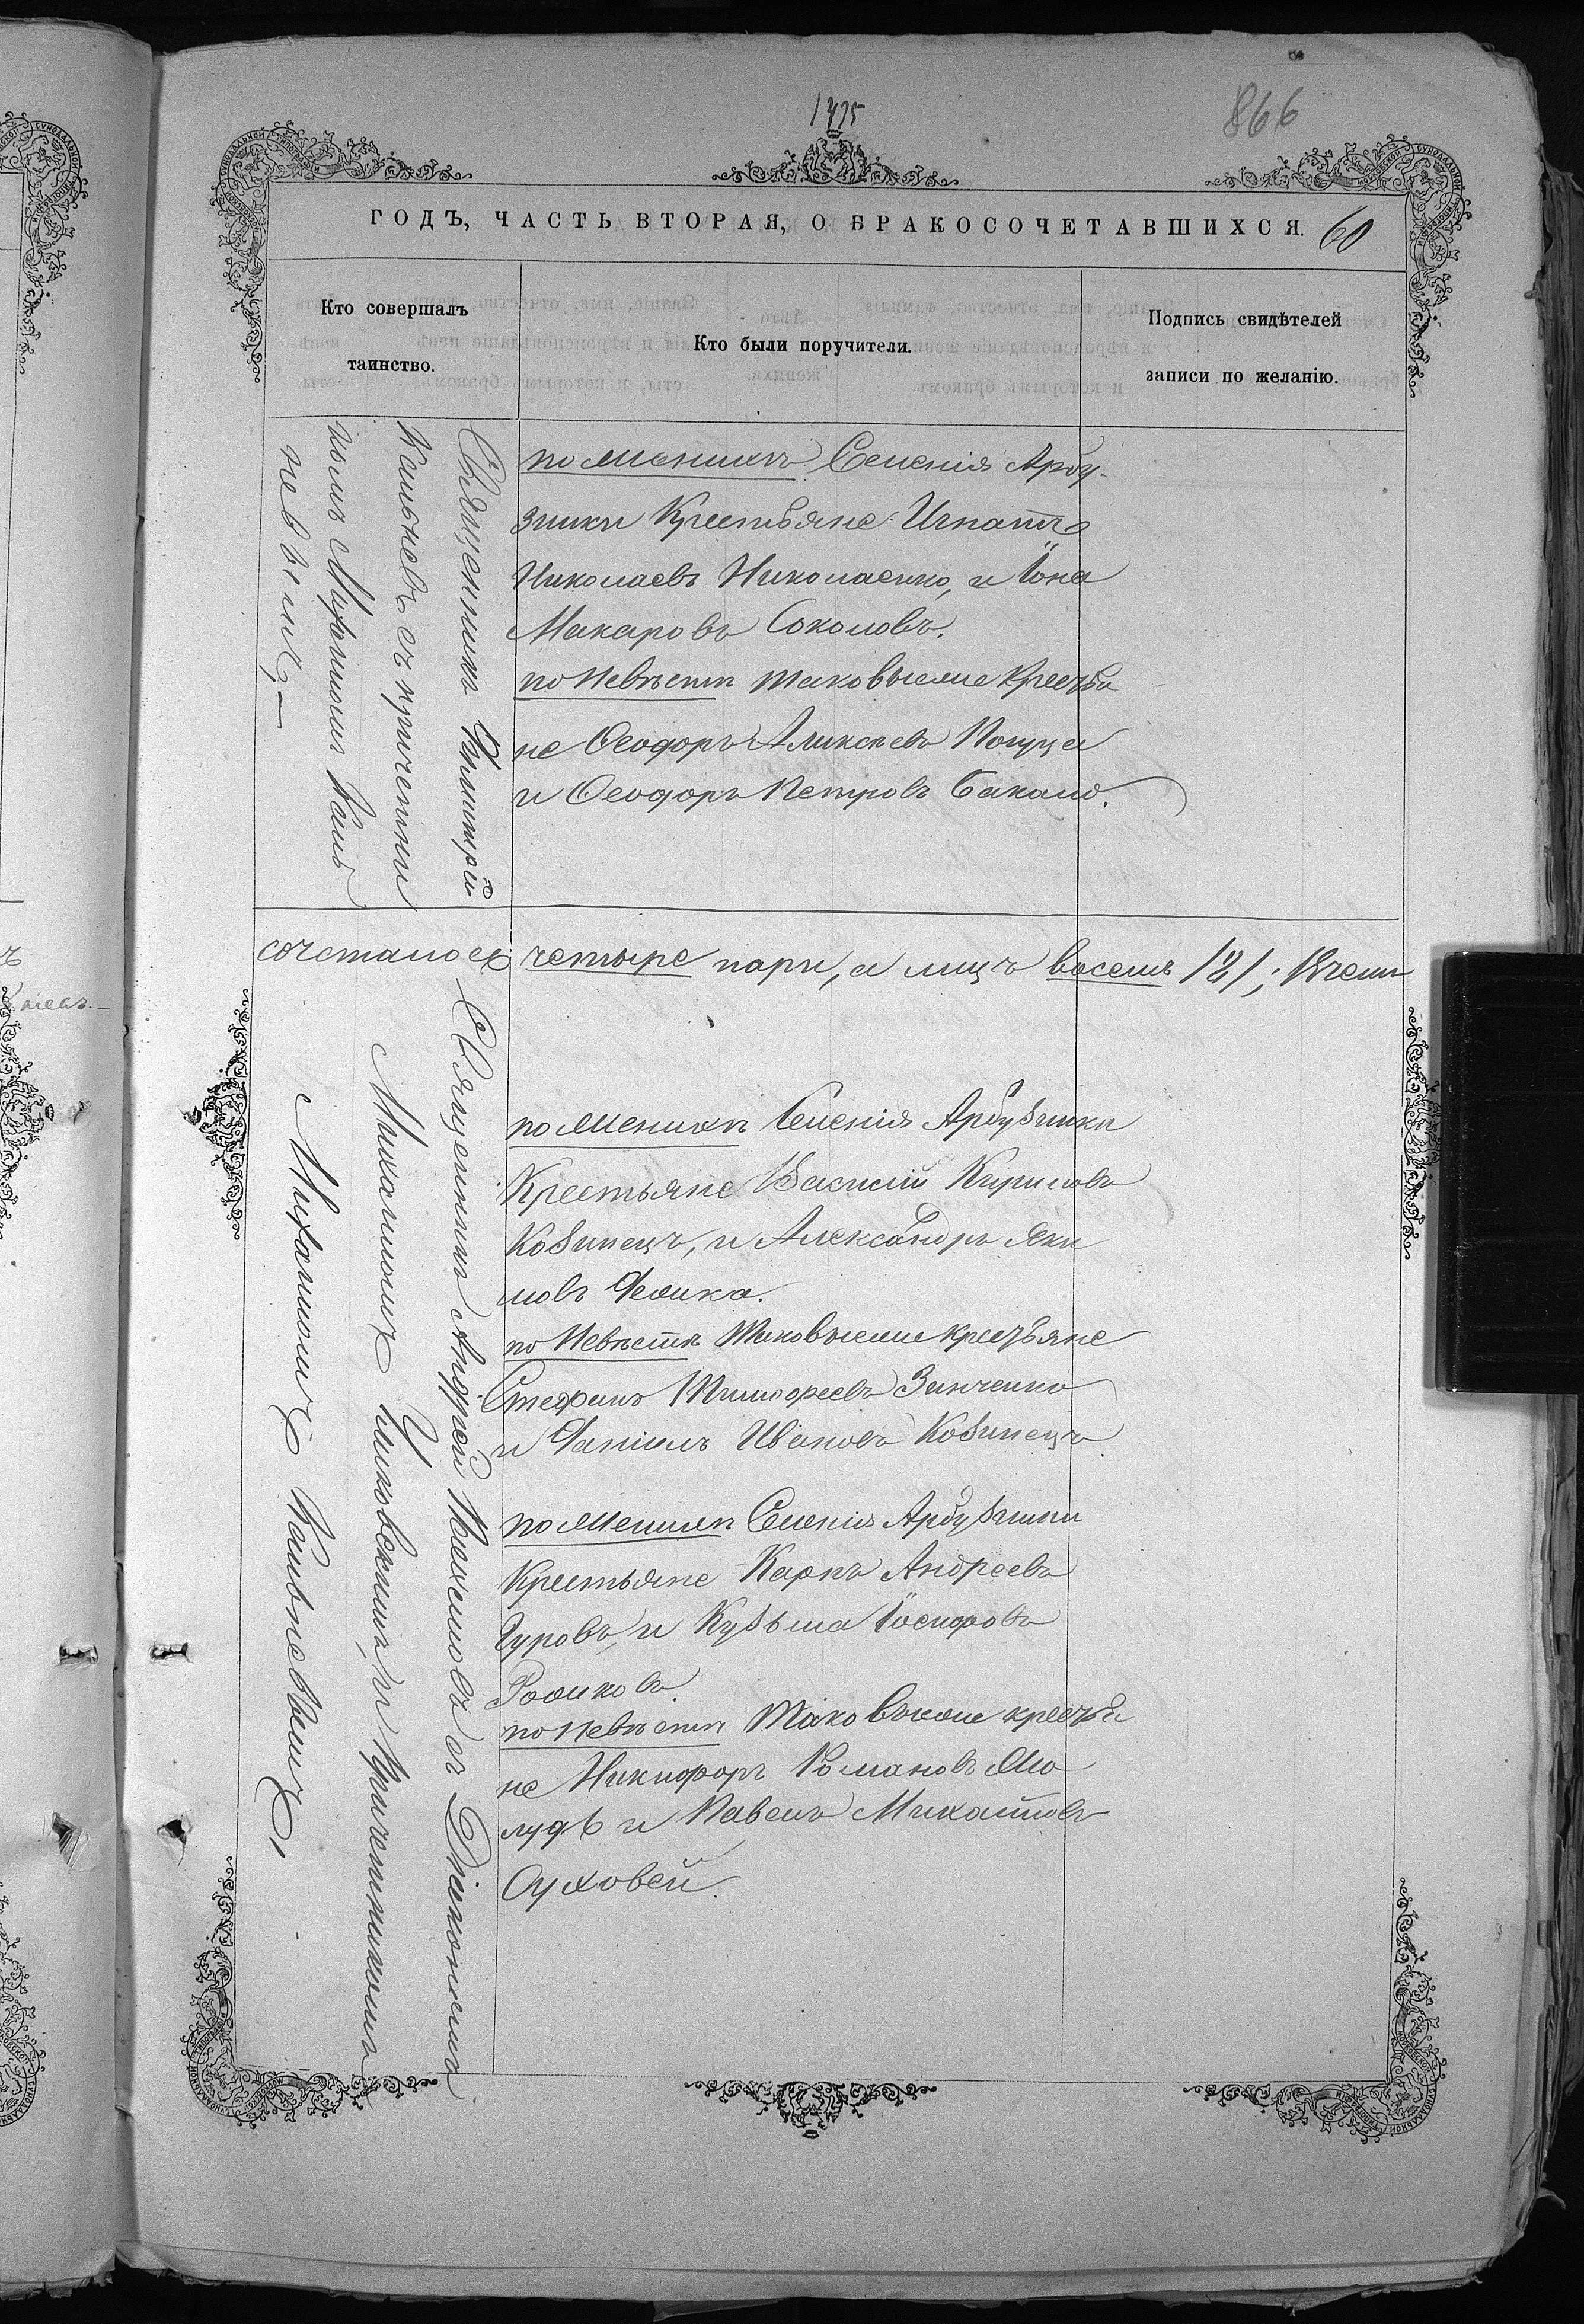 1475
866
ГОДЪ, ЧАСТЬ ВТОРАЯ, О БРАКОСОЧЕТАВШИХСЯ. 60
Кто совершалъ
таинство.
Кто были поручители.
Подпись свидѣтелей
записи по желанію.
Священникъ Димитрій
Кальневъ съ причетни
комъ Михаиломъ Каль
невымъ,—
по женихѣ Селенія Арбу-
зинки Крестьяне Игнатъ
Николаевъ Николаенко, и Іона
Макаровъ Соколовъ.
по Невѣстѣ таковыеже Крестья
не Ѳеодоръ Аликсѣевъ
и Ѳеодоръ Петровъ Бакало.
сочеталось четыре пары, а лицъ восемь
Священникъ Андрей съ Діакономъ
Михаиломъ и Причетникомъ
Михаиломъ Кальневымъ,
по женихѣ Селенія Арбузинки
Крестьяне Василій Кириловъ
Козинецъ, и Александръ Яки
мовъ
по Невѣстѣ Таковыеже крестьяне
Стефанъ Тимофеевъ Зинченко
и Даніилъ Ивановъ Козинецъ
по Женихѣ Селенія Арбузинки
Крестьяне Карпъ Андреевъ
Гуровъ, и Кузьма Іосифовъ
по Невѣстѣ Таковыеже крестья
не Никифоръ Романовъ Жо
лудь и Павелъ Михаиловъ
Суховей.